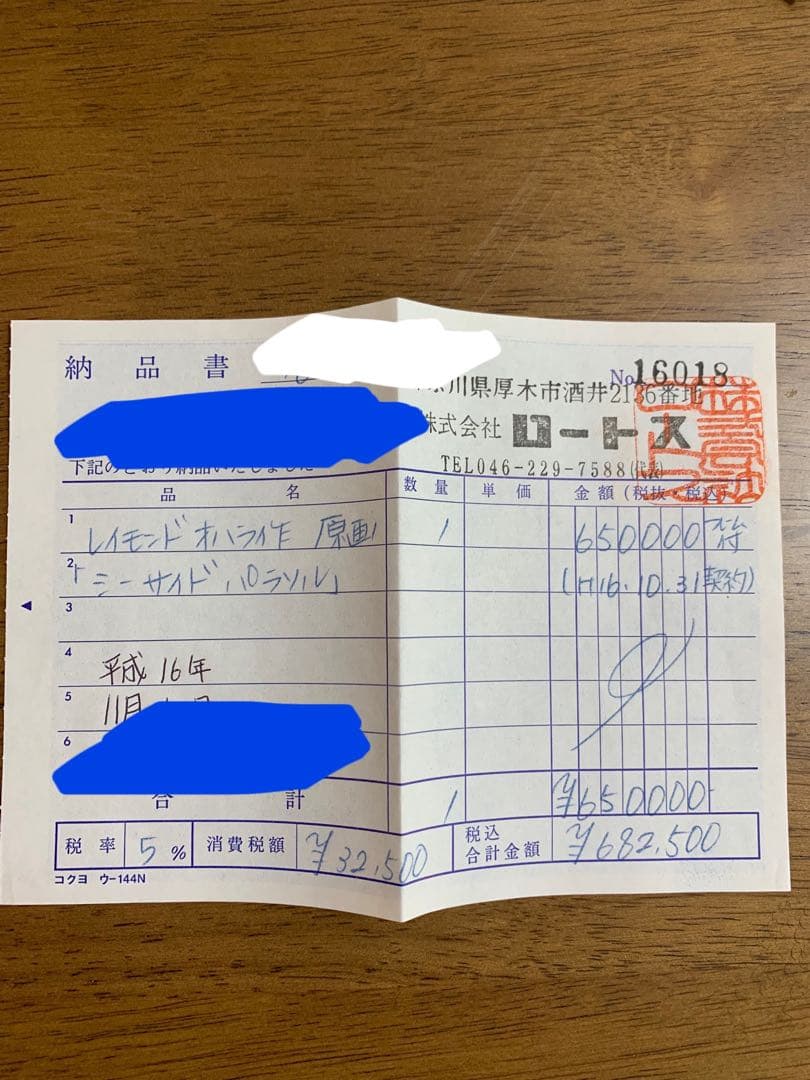 納品書
No.16018
川県厚木市酒井2136番地
株式会社 ロートス
TEL046-229-7588(代表)
下記のとおり納品いたしました
品名 数量 単価 金額(税抜・税込)
1 レイモンドオハライ作 原画 1 650000
2 「シーサイドパラソル」 (H16.10.31契約)
3
4 平成16年
5 11月
6
合計 1 ¥650000
税率 5% 消費税額 ¥32,500 税込合計金額 ¥682,500
コクヨ ウ-144N